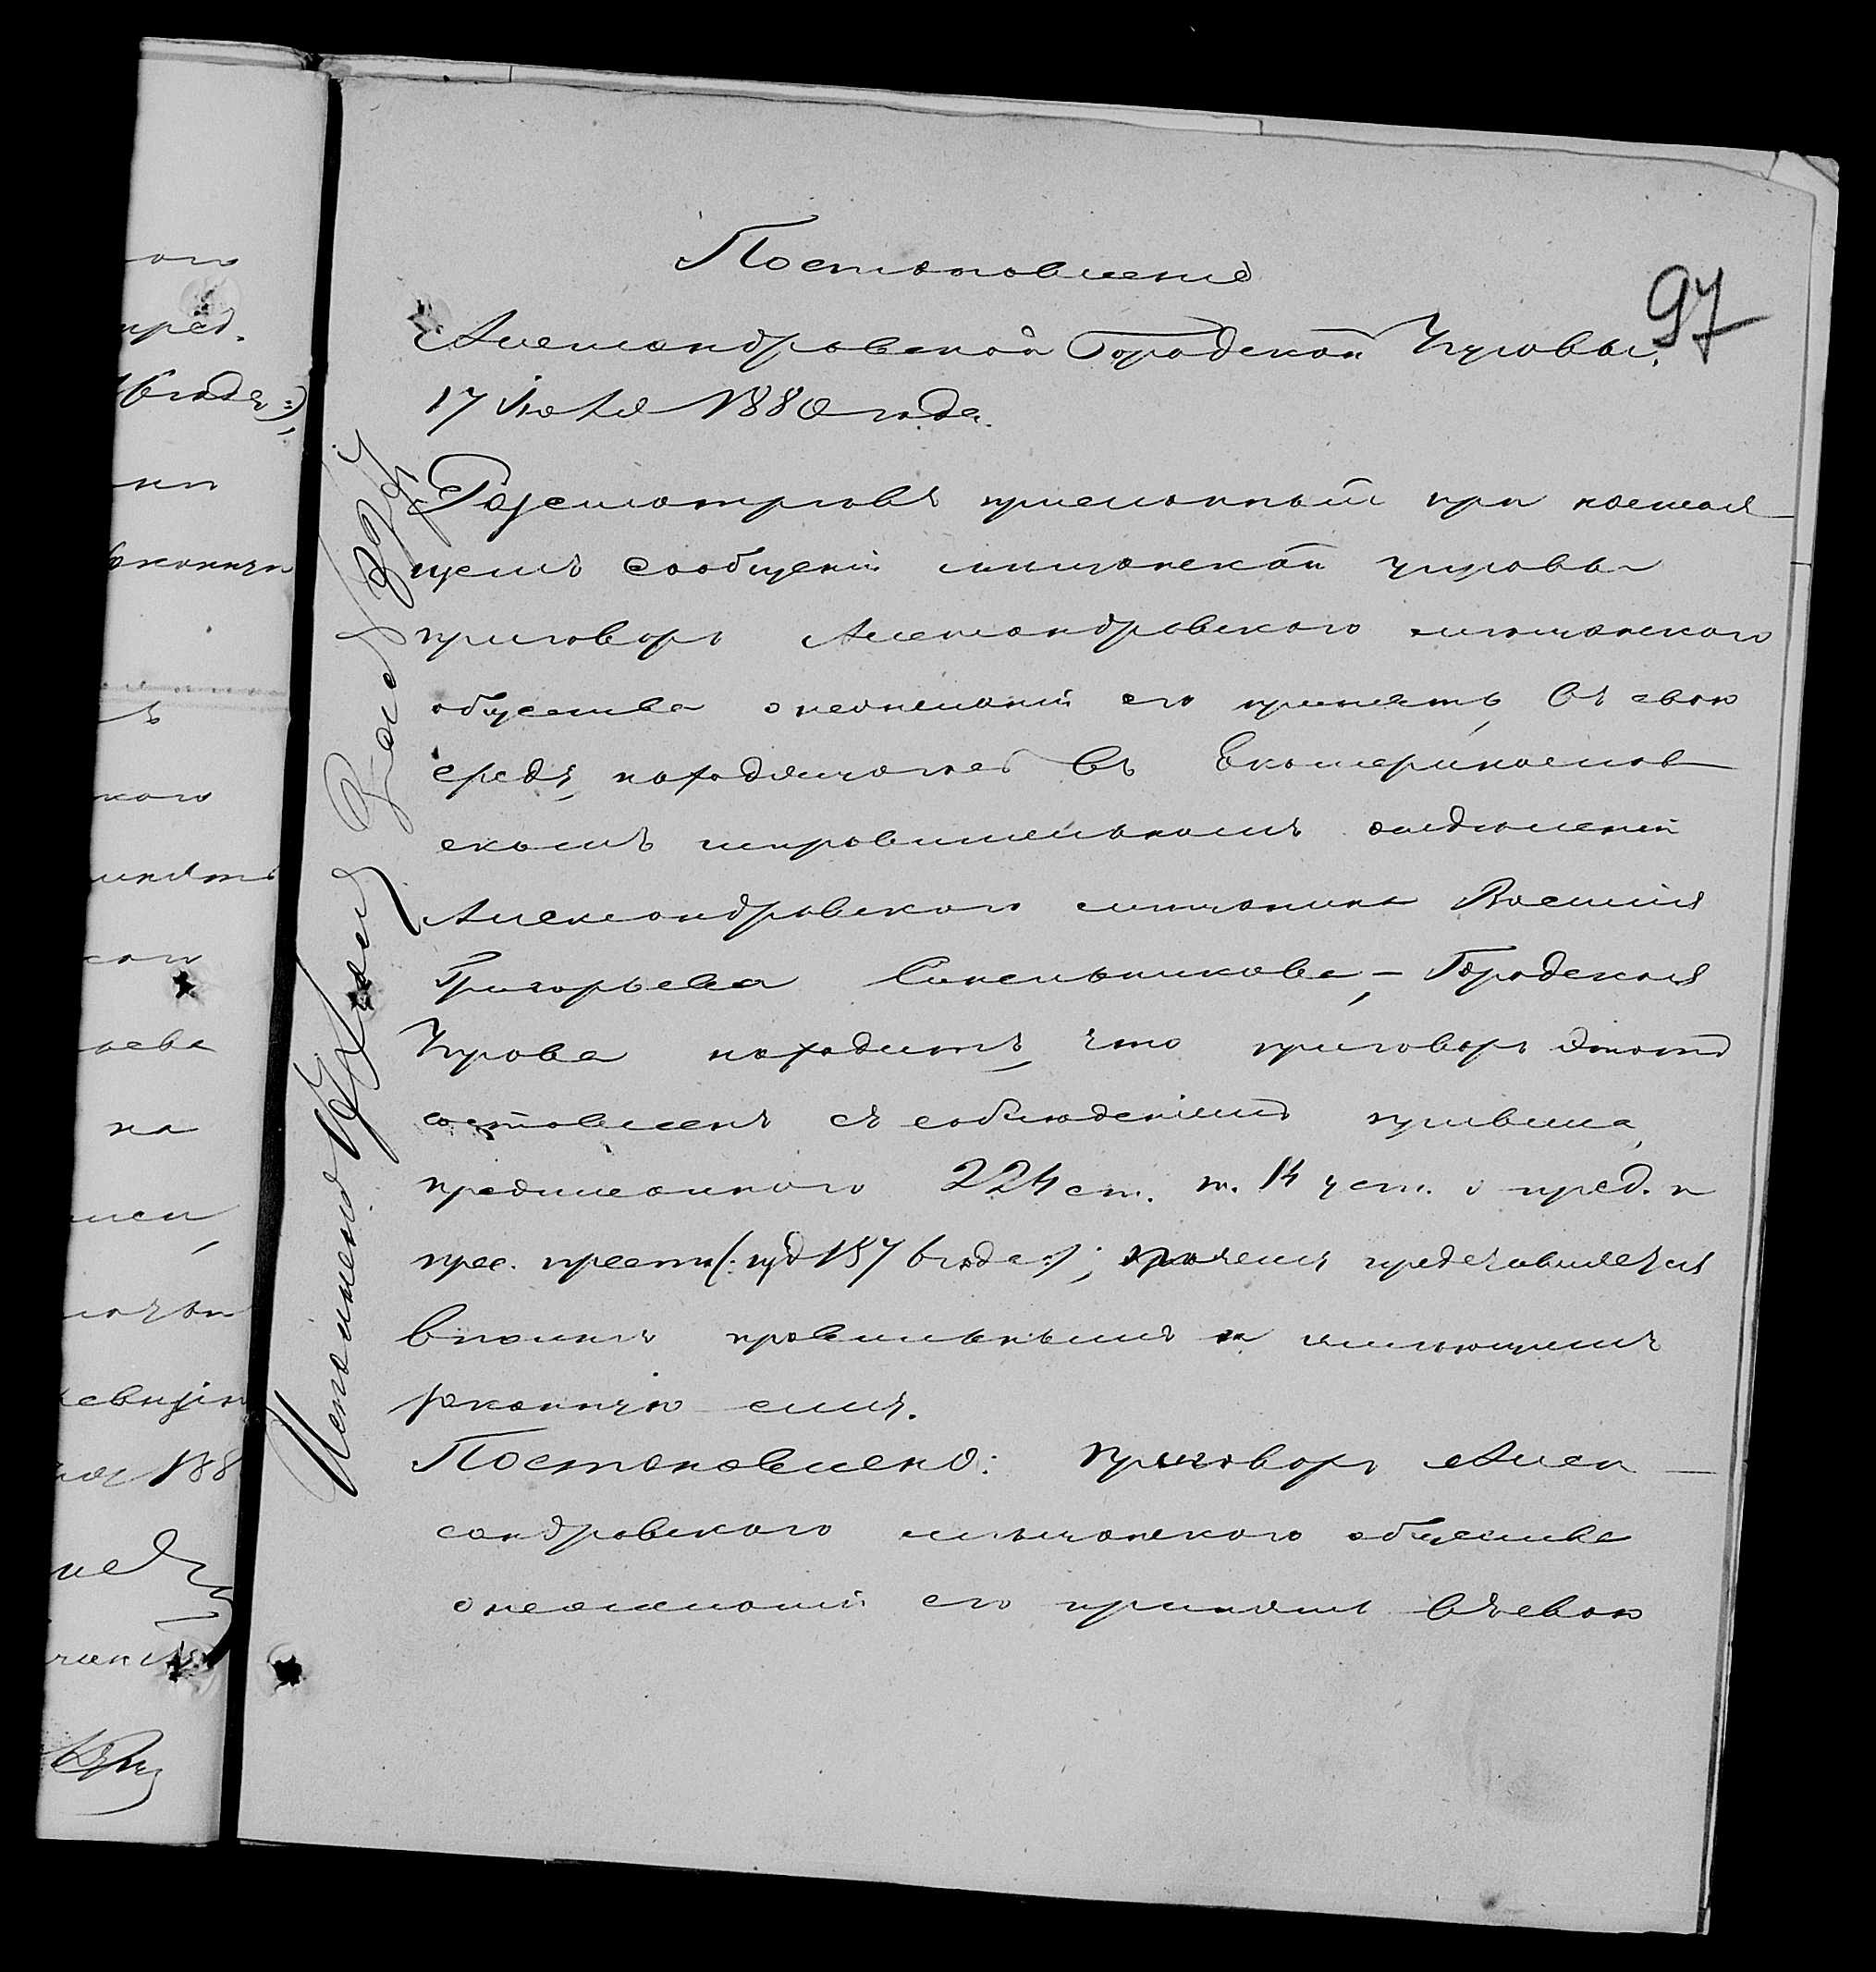 97
Постановленіе
Александровской Городской Управы.
17 Іюля 1880 года.
Разсмотрѣвъ присланный при настоя-
щемъ сообщеніи мѣщанской управы
приговоръ Александровскаго мѣщанскаго
общества о нежеланіи его принять, въ свою
среду, находящагося въ Екатеринослав-
скомъ исправительномъ отдѣленіи
Александровскаго мѣщанина Василія
Григорьева Синельникова,- Городская
Управа находитъ, что приговоръ этотъ
составленъ съ соблюденіемъ правила,
предписаннаго 224 ст. т. 14 уст. о пред. и
прес. прест. (: изд 1876 года:); почему представляется
вполнѣ правильнымъ и имѣющимъ
законную силу.
Постановлено: приговоръ Алек-
сандровскаго мѣщанскаго общества
о нежеланіи его принять въ свою
Исполнено